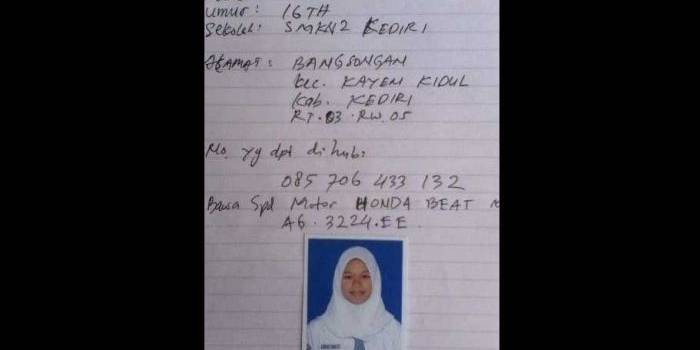 Umur: 16TH
Sekolah: SMKN2 KEDIRI
ALAMAT: BANGSONGAN
kec. KAYEN KIDUL
Kab. KEDIRI
RT.03.RW.05
No. yg dpt dihub:
085 706 433 132
Bawa Spd Motor HONDA BEAT
AG.3224.EE.